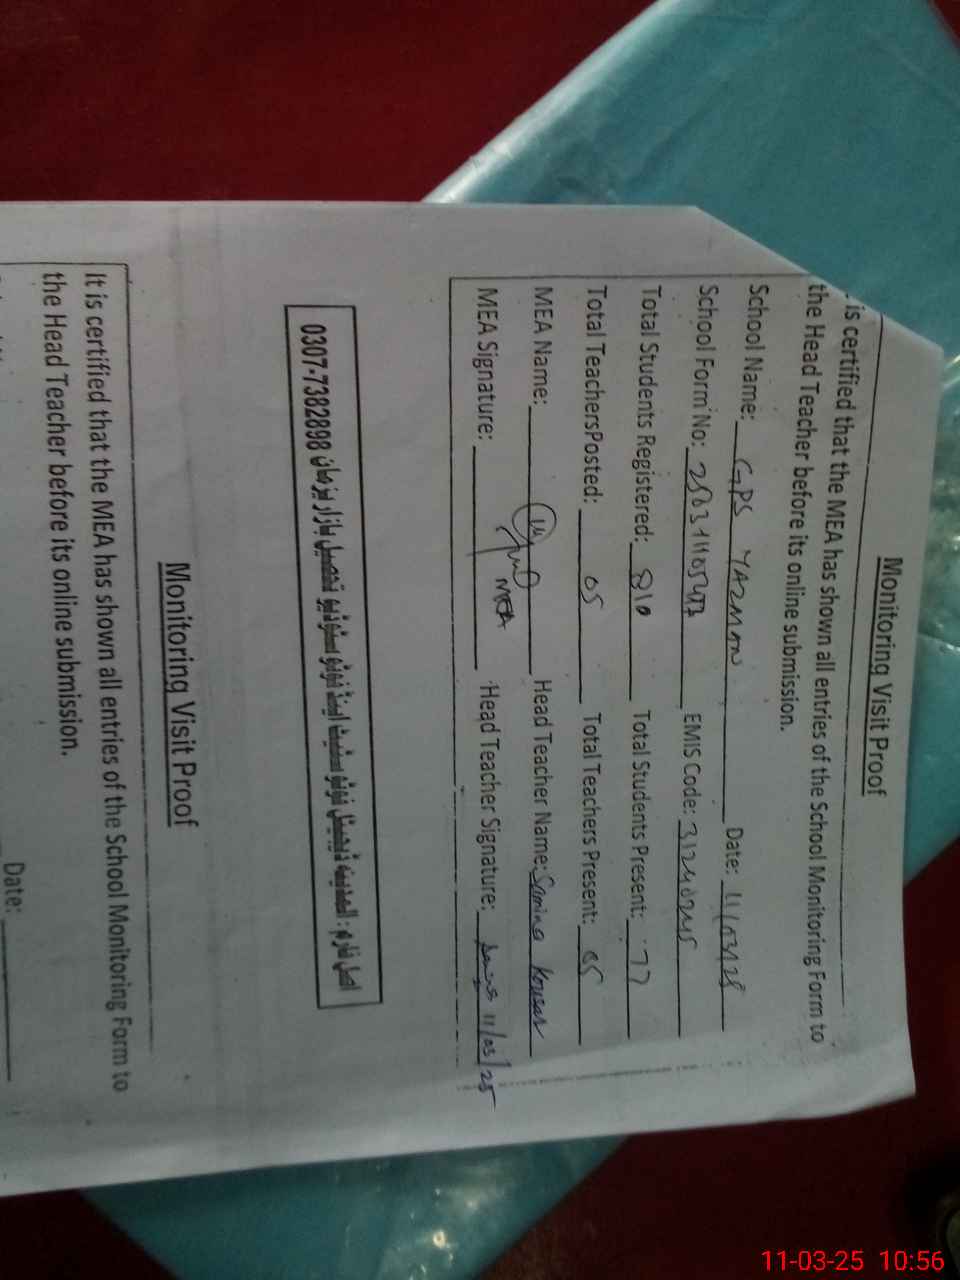 Monitoring Visit Proof
is certified that the MEA has shown all entries of the School Monitoring Form to
the Head Teacher before its online submission.
School Name: GPS YAZMAN Date: 11/03/25
School Form No: EMIS Code:
Total Students Registered: Total Students Present: 77
Total TeachersPosted: 05 Total Teachers Present: 05
MEA Name: Head Teacher Name: Samina Kousar
MEA Signature: MEA Head Teacher Signature: 11/03/25
اصل فارم : المدینہ ڈیجیٹل فوٹو سٹیٹ اینڈ فوٹو سٹوڈیو تحصیل بازار یزمان 0307-7382898
Monitoring Visit Proof
It is certified that the MEA has shown all entries of the School Monitoring Form to
the Head Teacher before its online submission.
Date:
11-03-25 10:56